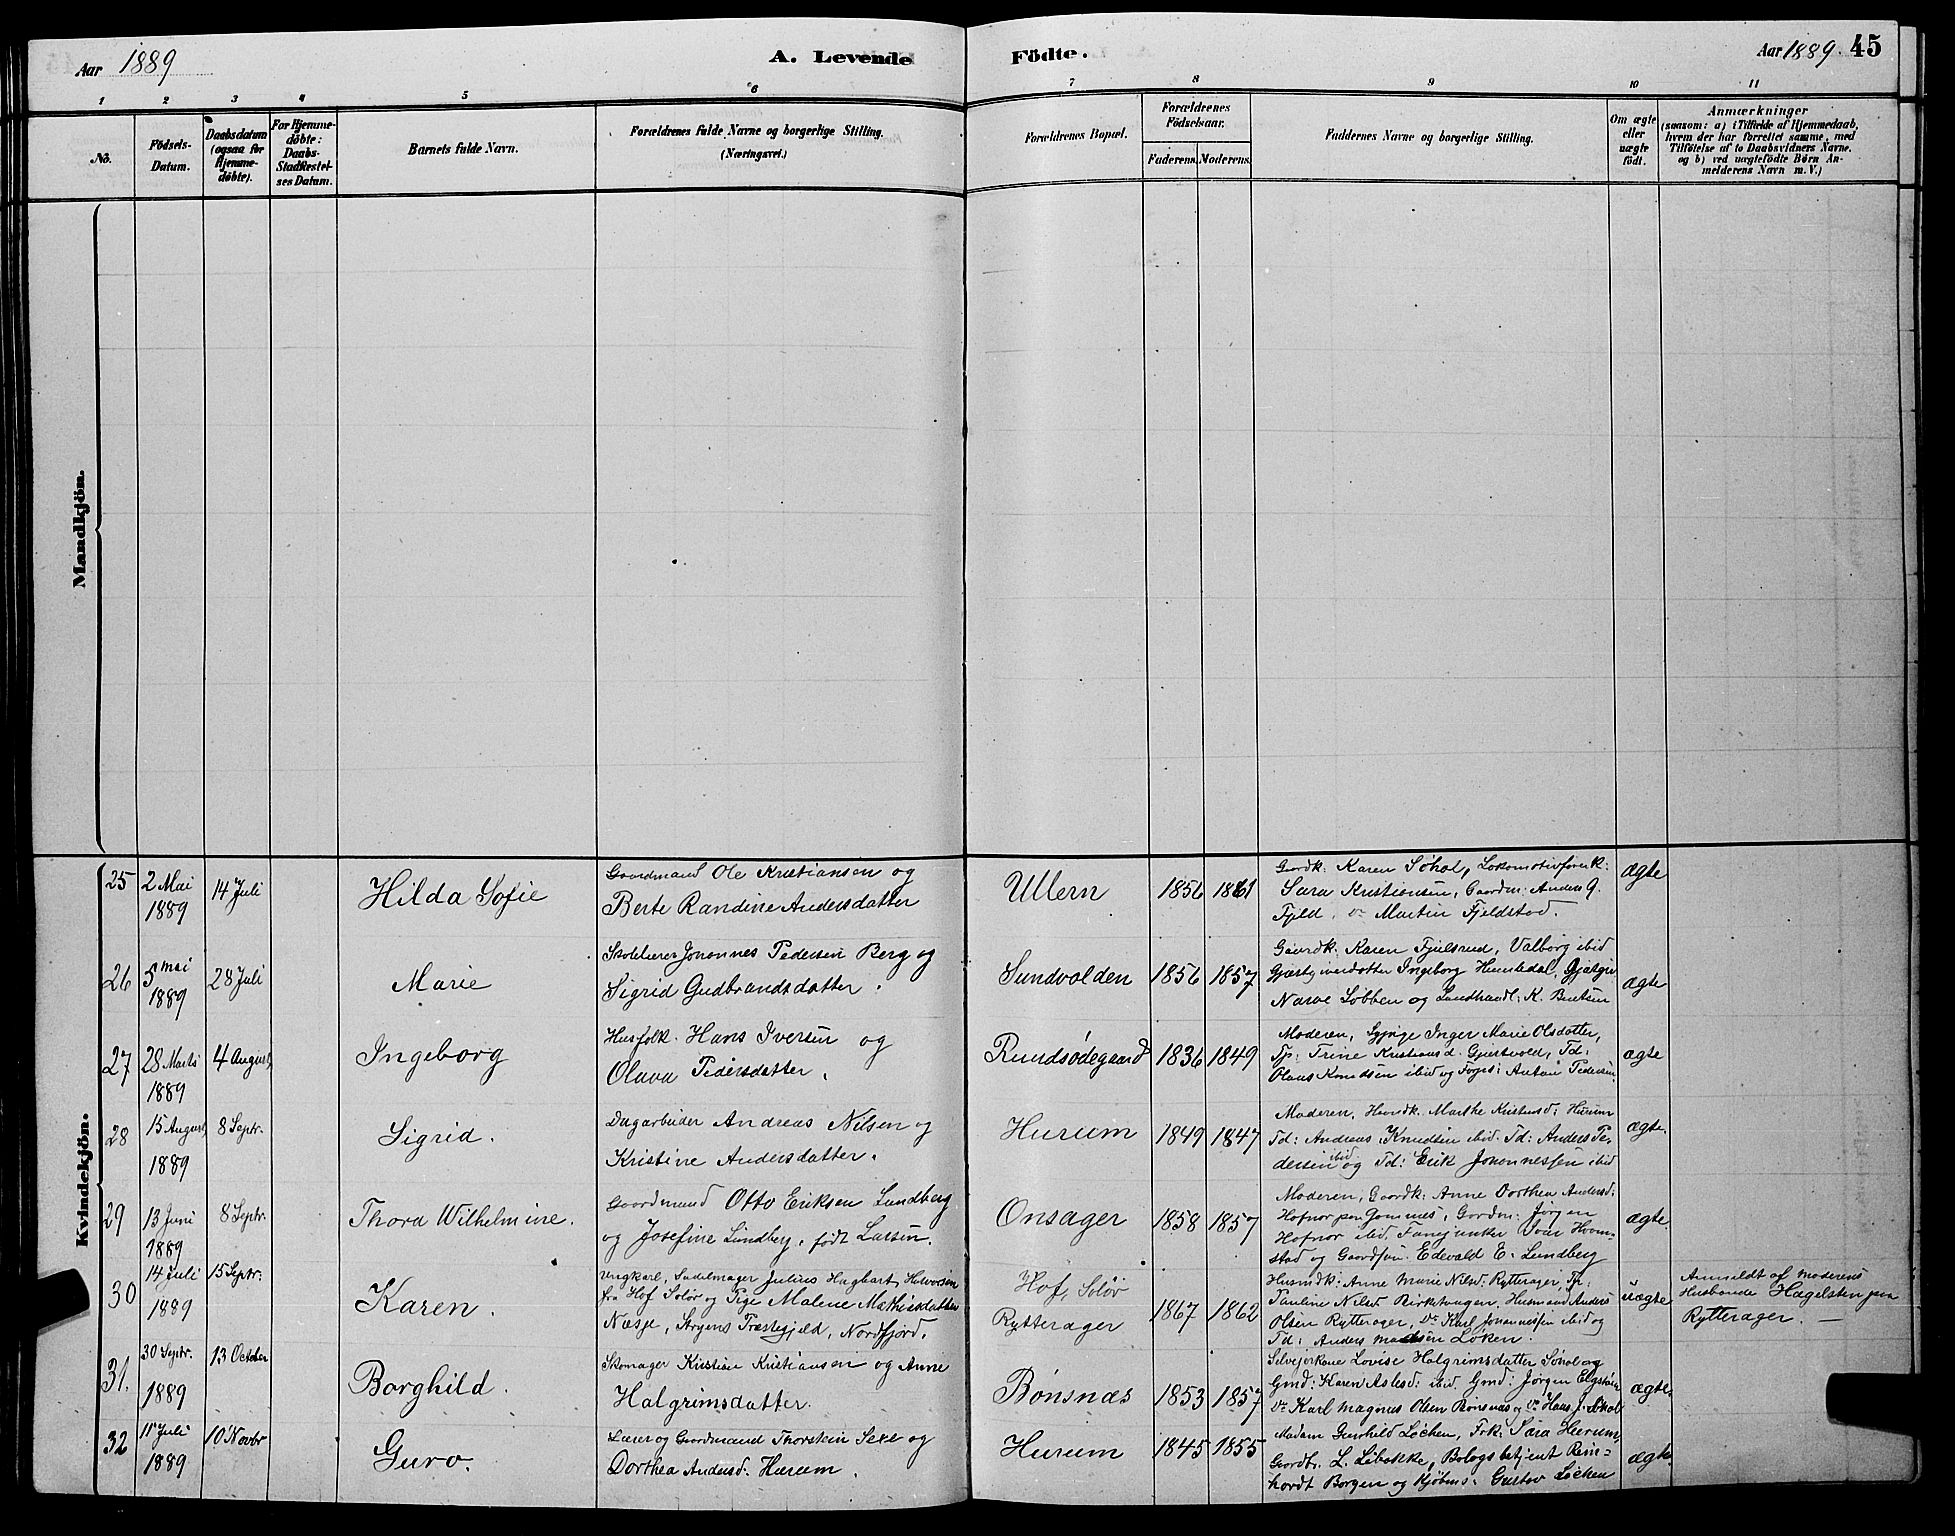 Aar 1889
A. Levende
Födte.
Aar 1889. 45
1 2 3 4 5 6 7 8 9 10 11
No.
Födsels-
Datum.
Daabsdatum
(ogsaa for
Hjemme-
döbte).
For Hjemme-
döbte:
Daabs-
Stadfæstel-
ses Datum.
Barnets fulde Navn.
Forældrenes fulde Navne og borgerlige Stilling.
(Næringsvei.)
Forældrenes Bopæl.
Forældrenes
Födselsaar.
Faderens. Moderens.
Faddernes Navne og borgerlige Stilling.
Om ægte
eller
uægte
födt.
Anmærkninger
(saasom: a) i Tilfælde af Hjemmedaab,
hvem der har forrettet samme, med
Tilföielse af to Daabsvidners Navne.
og b) ved uægtefödte Börn An-
melderens Navn m. V.)
Mandkjön.
Kvindekjön.
25 2 Mai
1889
14 Juli
Hilda Sofie
Gaardmand Ole Kristiansen og
Berte Randine Andersdatter
Ullern 1856 1861
Gordk: Karen Søhol, Lokomotivførerk:
Sara Kristiansen, Gaardm: Anders G.
Fjeld, Martin Fjeldstad.
ægte
26 5 mai
1889
28 Juli
Marie
Skolelærer Johannes Pedersen Berg og
Sigrid Gudbrandsdatter.
Sundvolden 1856 1857
Gaardk: Karen Fjulsrud, Valborg ibid
Gjæstgiverdatter Ingeborg Hemsedal, Gjæstgiv
Narve Løbben og Landhandl: K. Bentsen
ægte
27 28 Marts
1889
4 August,
Ingeborg
Husfolk. Hans Iversen og
Olava Pedersdatter.
Rundsødegaard 1836 1849
Moderen, Inger Marie Olsdatter,
Tp: Trine Kristiansd. Gjesvold, Td:
Olaus Knudsen ibid og Anton Pedersen
ægte
28 15 August,
1889
8 Septr.
Sigrid.
Dagarbeider Andreas Nilsen og
Kristine Andersdatter.
Hurum 1849 1847
Moderen, Marthe Kristensd: Hurum
Td: Andreas Knudsen ibid. Td: Anders Pe-
dersen ibid og Td: Erik Johannessen ibid
ægte.
29 13 Juni
1889
8 Septr.
Thora Wilhelmine.
Gaardmand Otto Eriksen Lundberg
og Josefine Lundberg, født Larsen.
Onsager 1858 1857
Moderen, Gaardk: Anne Dorthea Andersd:
Hofnor paa Gomnes, Gordm: Jørgen
Hofnor ibid, Fanejunker Ivar Hvam-
stad og Gaardsøn. Edevald E. Lundberg
ægte
30 14 Juli
1889
15 Septr:
Karen.
Ungkarl, Sadelmager Julius Hagbart Halvorsen
fra Hof Solør og Pige Malene Mathisdatter
Næsje, Stryens Præstegjeld, Nordfjord.
Hof, Solör
Rytterager 1867 1862
Husmdk: Anne Marie Nilsd, Rytterager, Tp:
Pauline Nilsd Birketangen, Husmand Anders
Olsen Rytterager, Do Karl Johannessen ibid og
Td: Anders Madsen Løken.
uægte
Anmeldt af moderens
Husbonde Hagelsten paa
Rytterager. —
31. 30 Septr.
1889
13 October
Borghild.
Skomager Kristian Kristiansen og Anne
Halgrimsdatter.
Bønsnæs 1853 1857
Selvejerkone Lovise Halgrimsdatter Søhol og
Gmd: Karen Aslesd: ibid, Gmd: Jørgen Elgstøen
Do Karl Magnus Olsen Bønsnæs og Do Hans J. Søhol
ægte
32 11 Juli
1889
10 Novbr
Guro.
Lærer og Gaardmand Thorstein Sexe og
Dorthea Andersd: Hurum.
Hurum 1845 1855
Madam Gunhild Løchen, Frk: Sara Hurum,
Gordbr. L. Libakke, Bologsbetjent Rein=
hardt Borgen og Kjøbm: Gustav Løchen
ægte